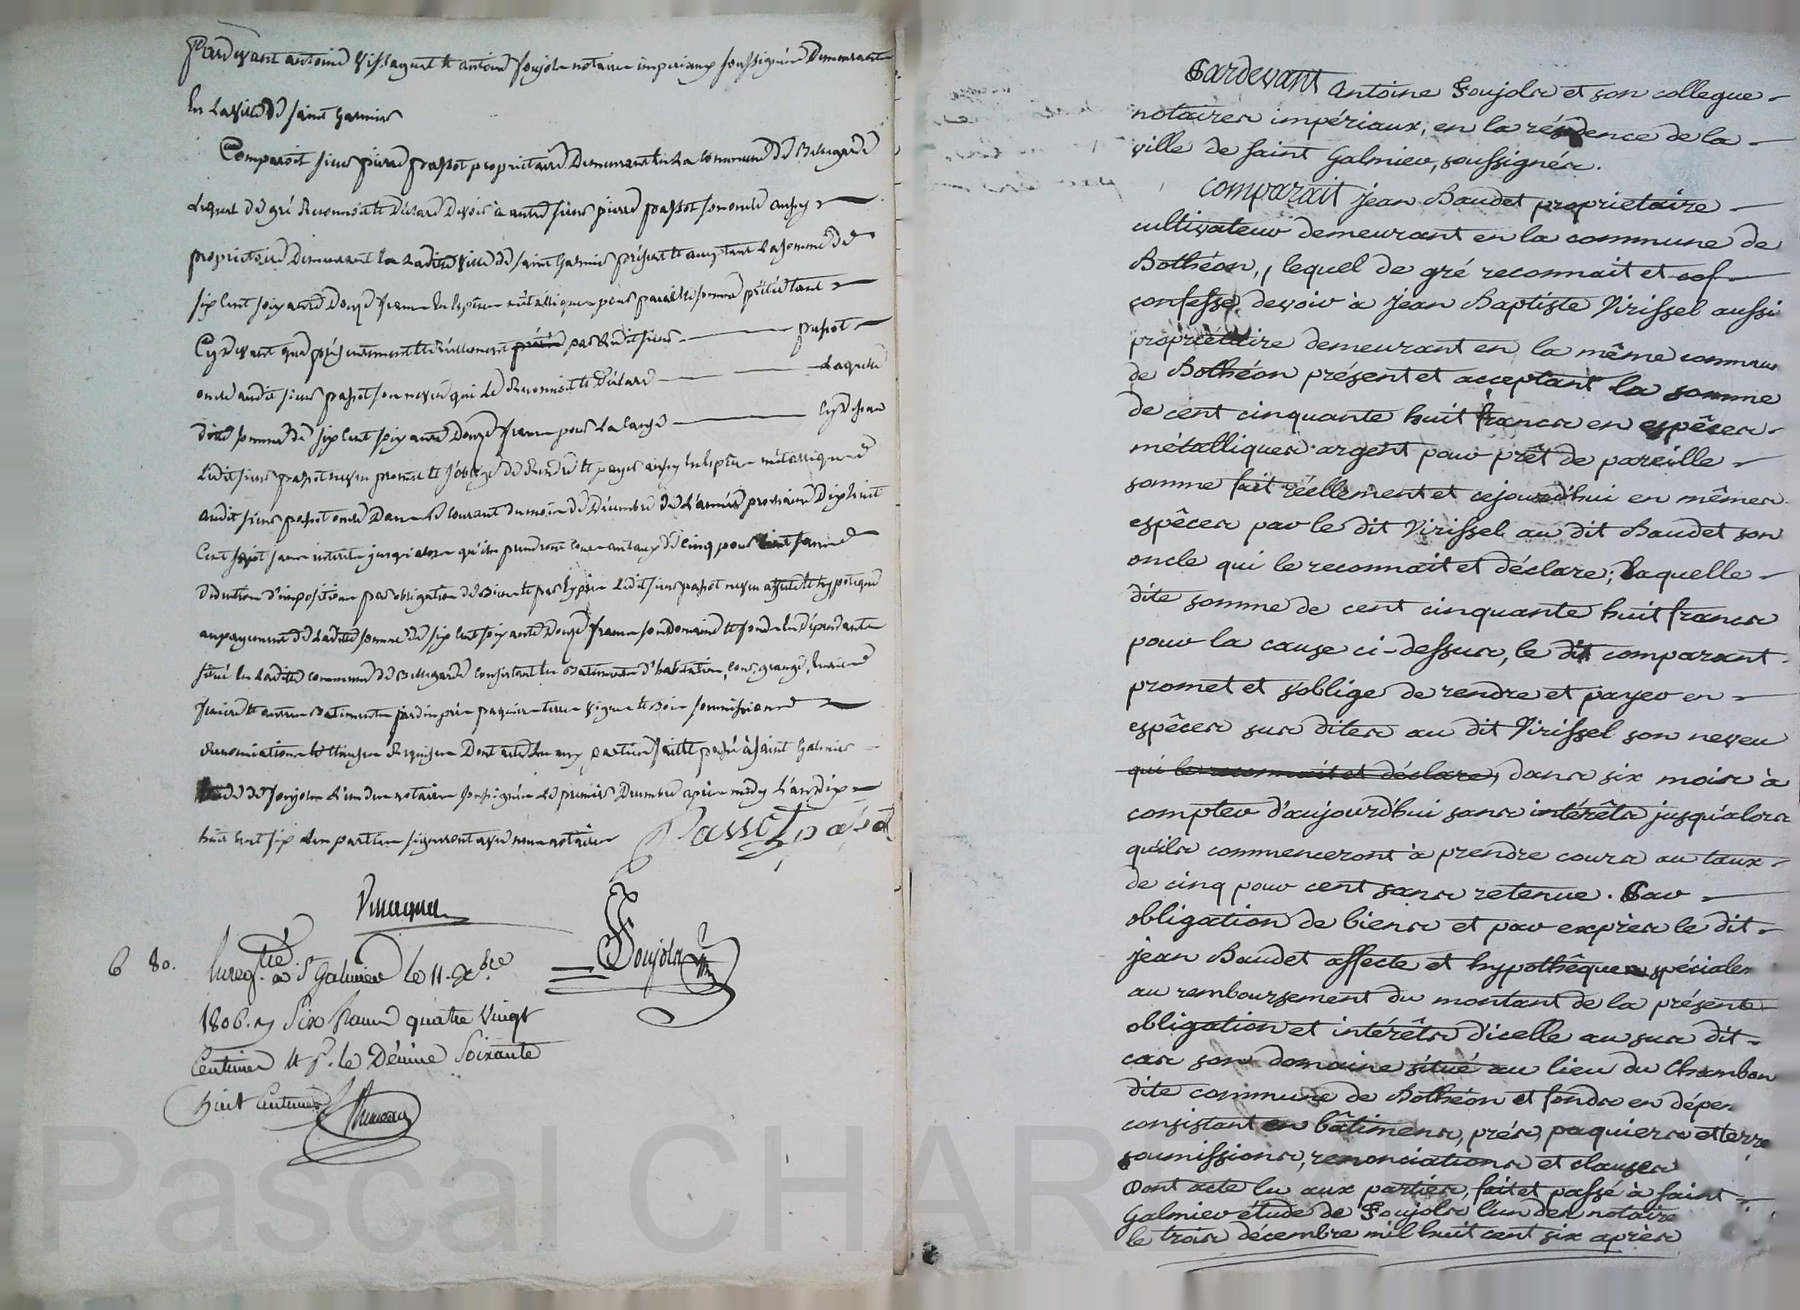 Pardevant antoine Vissaguet et antoine Foujols notaires imperiaux soussignés Demeurants
En La Ville de saint Galmier
Comparoit sieur pierre passot proprietaire Demeurant En La Commune de Bellegarde
Lequel de gré Reconnoit et Déclare Devoir à autre sieur pierre passot son oncle aussy
proprietaire Demeurant En Laditte Ville de saint Galmier présent et acceptant La somme de
six Cent soixante Douze francs En Espèces métalliques pour pareille somme
Cydevant que présentement et réellement par Ledit sieur passot
oncle audit sieur passot son neveu qui Le Reconnoit et Déclare Laquelle
ditte somme de six Cent soixante Douze francs pour La Cause Cy dessus
Ledit sieur passot neveu promet et s'oblige de Rendre et payer aussy En Espèces métalliques
audit sieur passot oncle Dans Le Courant du mois de Décembre de L'année prochaine Dix huit
Cent sept sans interets jusqu'alors qu'ils prendront Cours au taux de Cinq pour Cent sans
Détention d'imposition par obligation de Biens et par Exprès Ledit sieur passot neveu affecte et hypoteque
au payement de Laditte somme de six Cent soixante Douze francs son Domaine et fonds En Dépendants
situé En Laditte Commune de Bellegarde Consistant En Batiments d'habitation, Cour, grange, Ecurie
et autres Batiments jardin prés paquiers terres Vignes et Bois soumissions
Renonciations et Clauses Requises Dont acte Lu aux parties fait et passé à saint Galmier
de Foujols L'un des notaires soussignés Le premier Décembre après midy L'an dix
huit Cent six Les parties signeront avec nous notaires
Passot passot
Vissaguet
Foujols
6 80.
Enregtré à St Galmier le 11. Xbre
1806. Six francs quatre Vingt
Centimes et p. le Décime Soixante
huit Centimes
Pardevant Antoine Foujols et son collegue
notaires impériaux, en la résidence de la
ville de saint Galmier, soussignés.
Comparait jean Baudet proprietaire
cultivateur demeurant en la commune de
Bothéon, lequel de gré reconnait et cof
confesse devoir à jean Baptiste Virissel aussi
propriétaire demeurant en la même commune
de Bothéon présent et acceptant la somme
de cent cinquante huit francs en espêces
métalliques argent pour prêt de pareille
somme fait réellement et cejourd'hui en mêmes
espêces par le dit Virissel au dit Baudet son
oncle qui le reconnait et déclare; Laquelle
dite somme de cent cinquante huit francs
pour la cause ci-dessus, le dit comparant
promet et s'oblige de rendre et payer en
espêces sus dites au dit Virissel son neveu
qui le reconnait et déclare, dans six mois à
compter d'aujourd'hui sans intérêts jusqu'alors
qu'ils commenceront à prendre cours au taux
de cinq pour cent sans retenue. Par
obligation de biens et par exprès le dit
jean Baudet affecte et hypothêque spécialem
au remboursement du montant de la présente
obligation et intérêts d'icelle au sus dit
cas son domaine situé au lieu du Chambon
dite commune de Bothéon et fonds en dépen
consistant en bâtimens, prés, paquiers et terre
soumissions, renonciations et clauses
Dont acte lu aux parties, fait et passé à saint
Galmier étude de Foujols l'un des notaire
le trois décembre mil huit cent six après
Pascal CHAR